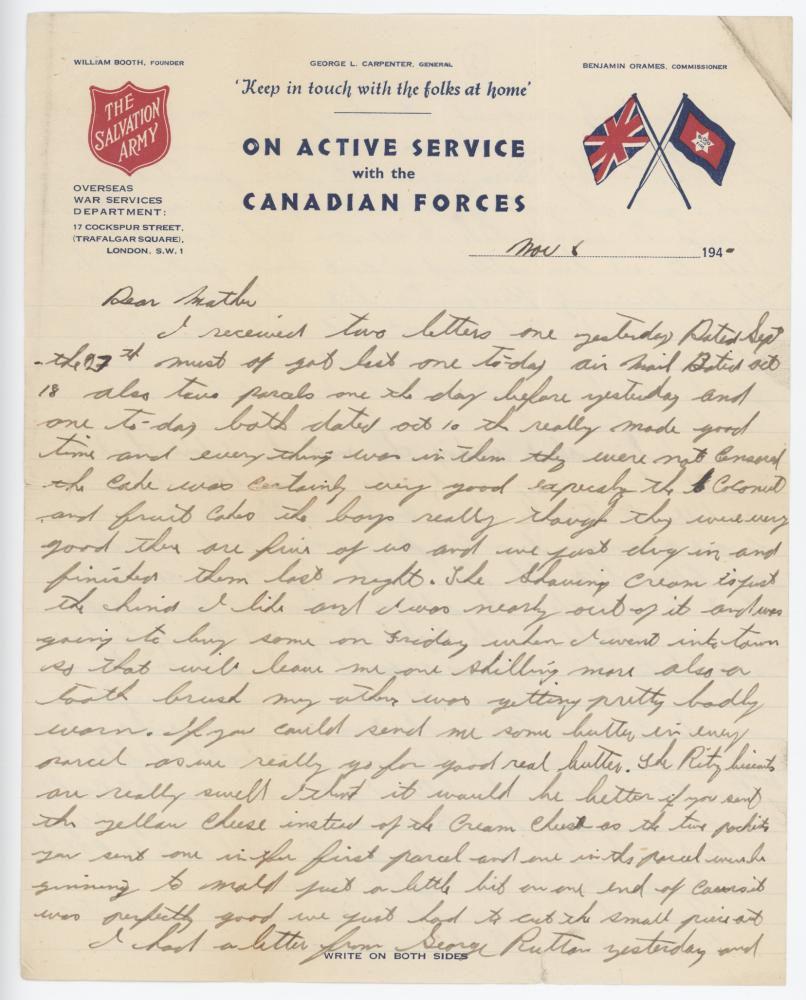 WILLIAM BOOTH, FOUNDER
GEORGE L. CARPENTER, GENERAL
BENJAMIN ORAMES, COMMISSIONER
'Keep in touch with the folks at home'
THE
SALVATION
ARMY
ON ACTIVE SERVICE
with the
CANADIAN FORCES
OVERSEAS
WAR SERVICES
DEPARTMENT:
17 COCKSPUR STREET,
(TRAFALGAR SQUARE),
LONDON, S.W. 1
Nov 6 194
Dear Mother
I received two letters one yesterday Dated Sept
the 27th must of got lost one to-day air mail Dated oct
18 also two parcels one the day before yesterday and
one to-day both dated oct 10 th really made good
time and every thing was in them they were not Censored
the Cake was certainly very good especially the Coconut
and fruit Cakes the boys really though they were very
good ther are five of us and we just dug in and
finished them last night. The Shaving Cream is just
the kind I like and I was nearly out of it and was
going to buy some on Friday when I went into town
so that will leave me one shilling more also a
tooth brush my other was getting pretty badly
worn. If you could send me some butter in every
parcel as we really go for good real butter. The Ritz biscuits
are really swell I think it would be better if you sent
the yellow Cheese instead of the Cream Cheese as the two packets
you sent one in the first parcel and one in this parcel were be
ginning to mold just a little bit on one end of course it
was perfectly good we just had to cut the small piece out
I had a letter from George Rutton yesterday and
WRITE ON BOTH SIDES